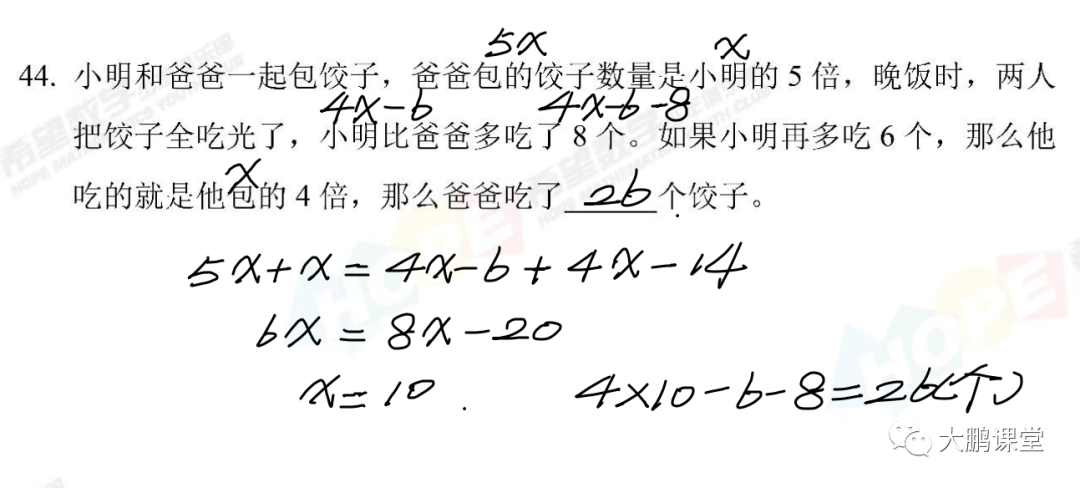 5x x
44. 小明和爸爸一起包饺子，爸爸包的饺子数量是小明的 5 倍，晚饭时，两人
4x-6 4x-6-8
把饺子全吃光了，小明比爸爸多吃了 8 个。如果小明再多吃 6 个，那么他
x
吃的就是他包的 4 倍，那么爸爸吃了 26 个饺子。
5x+x=4x-6+4x-14
6x=8x-20
x=10. 4×10-6-8=26(个)
大鹏课堂